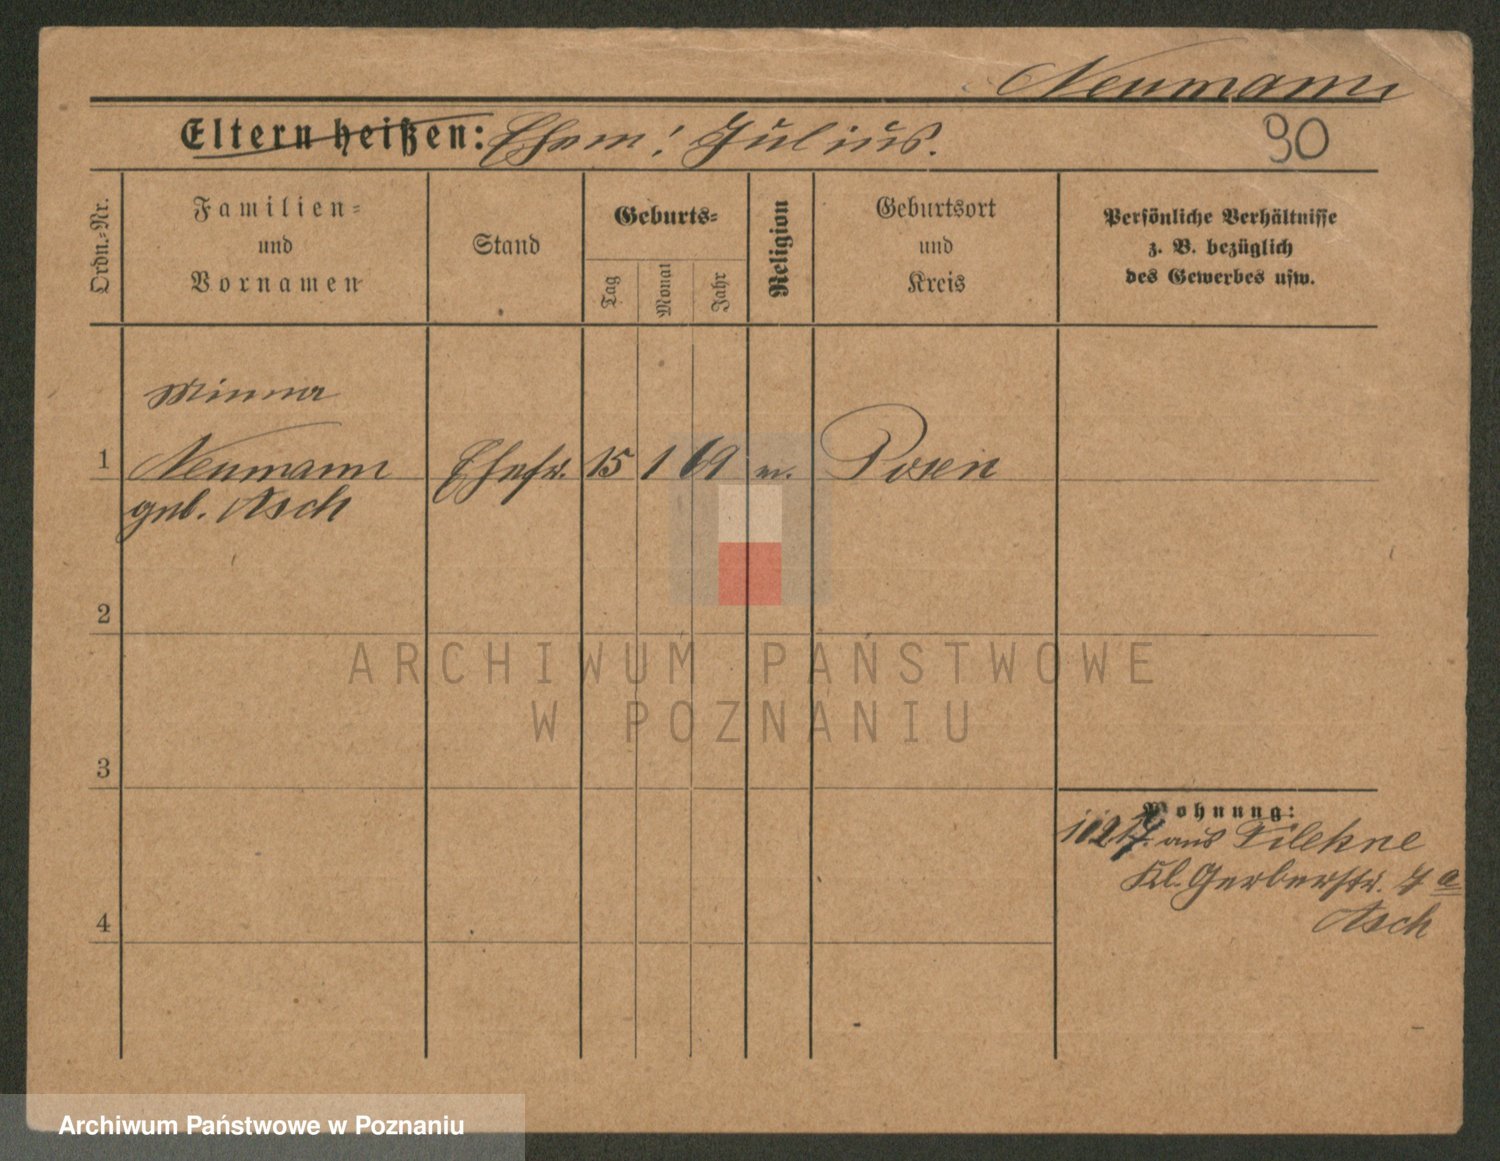 Neumann
Eltern heißen: Ehem: Julius.
90
Ordn.-Nr.
Familien-
und
Vornamen
Stand
Geburts-
Tag
Monat
Jahr
Religion
Geburtsort
und
Kreis
Persönliche Verhältnisse
z. B. bezüglich
des Gewerbes usw.
Minna
1 Neumann Ehefr. 15 1 69 m. Posen
geb. Asch
2
3
4
Wohnung:
aus Filehne
Kl. Gerberstr. 7a
Asch
ARCHIWUM PAŃSTWOWE
W POZNANIU
Archiwum Państwowe w Poznaniu